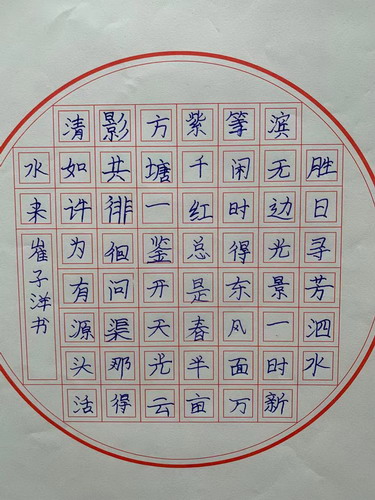 胜日寻芳泗水
滨无边光景一时新
等闲时得东风面万
紫千红总是春半亩
方塘一鉴开天光云
影共徘徊问渠那得
清如许为有源头活
水来
崔子洋书